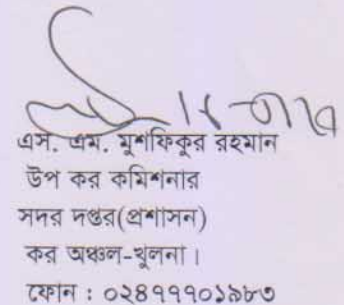 এস. এম. মুশফিকুর রহমান
উপ কর কমিশনার
সদর দপ্তর(প্রশাসন)
কর অঞ্চল-খুলনা।
ফোন : ০২৪৭৭৭০১৯৮৩